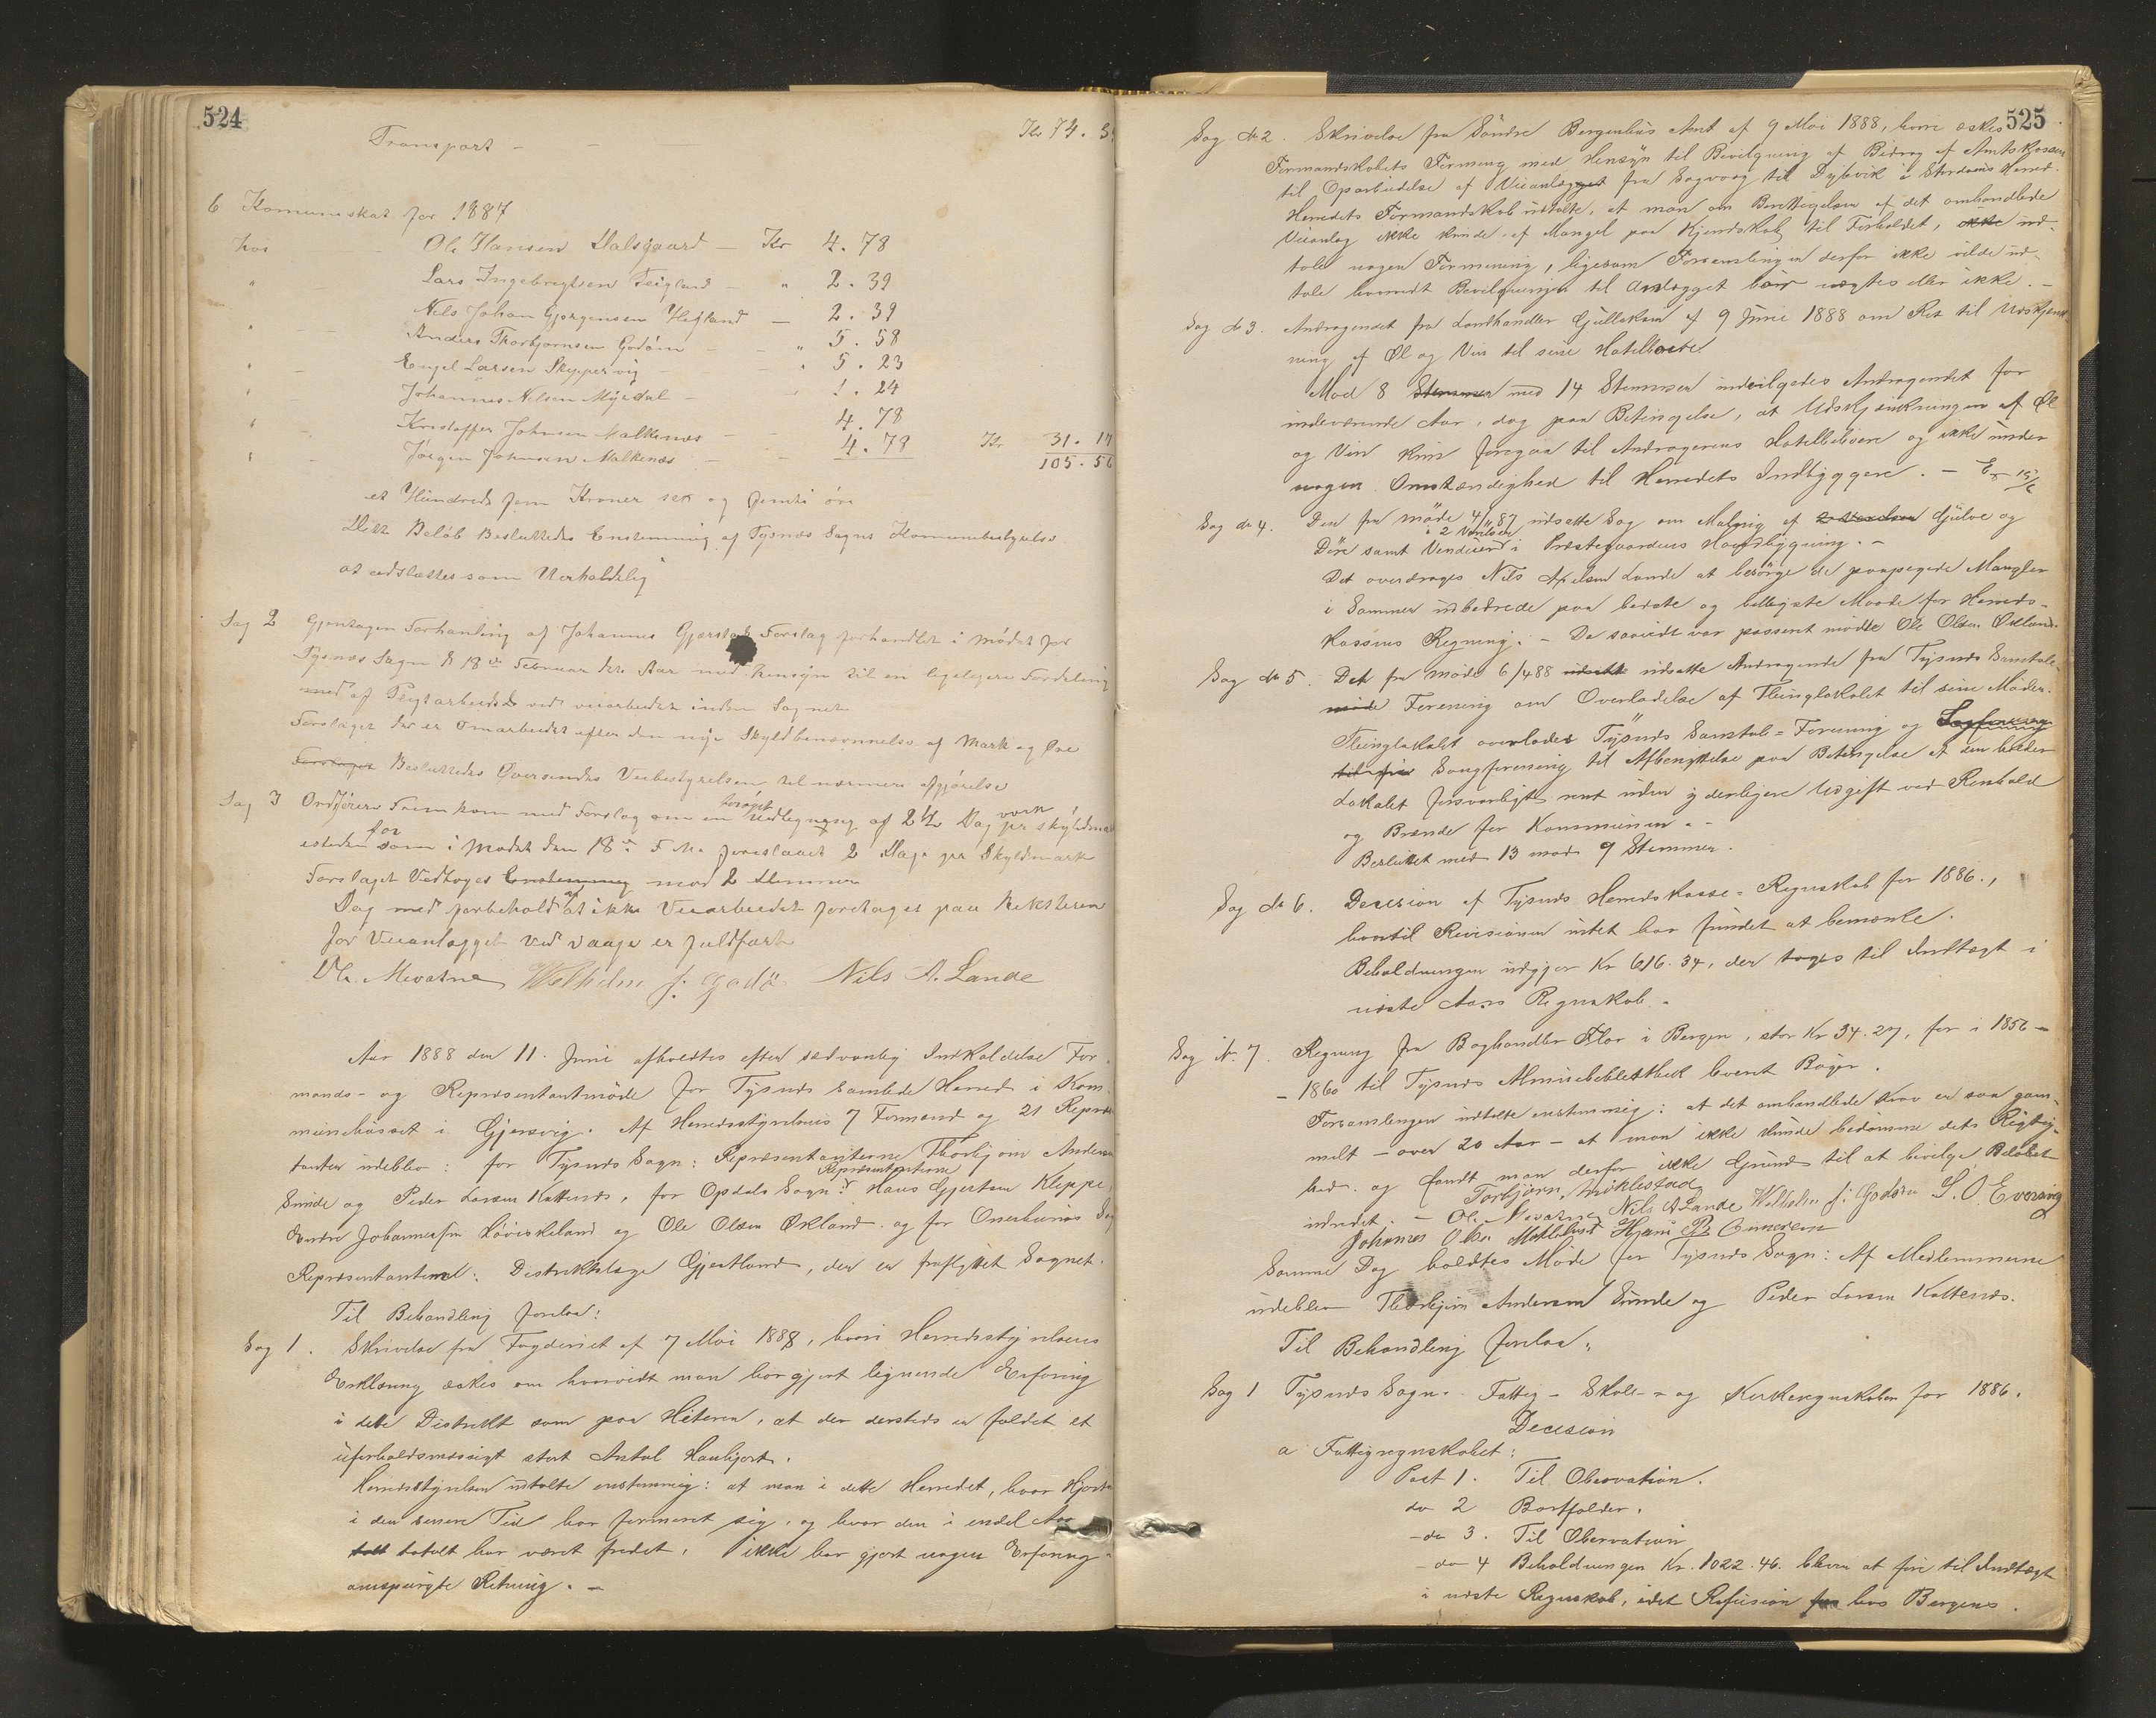 524
Transport - - Kr 74. 3
6 Komunskat for 1887
hos Ole Hansen Dalsgaard - Kr 4.78
" - Lars Ingebregtsen Teigland - " 2.39
Nils Johan Gjørgensen Hegland - 2.39
" - Anders Thorbjørnsen Godöen - " 5.58
" - Engel Larsen Skyppervig - " 5.23
" - Johannes Nelsen Myrdal - - 1.24
" - Kristoffer Johnsen Malkenæs - - 4.78
" - Jörgen Johnsen Malkenæs - - 4.79 Kr 31.17
105.56
et Hundrede fem Kroner sex og femti øre
Dette Belöb Besluttedes Enstemmig af Tysnæs Sogns Komunebestyrelse
at udslættes som Uerholdelig
Sag 2 Gjentagen Forhanling af Johannes Gjerstads Forslag forhandlet i mödet for
Tysnæs Sogn d 18de Februar dte Aar med hensyn til en ligeligere Fordeling
med af Pligtarbeidet ved veiarbeidet inden Sognet
Forslaget der er omarbeidet efter den nye Skyldbenævnnelse af Mark og Øre
Forslaget Besluttedes Oversendes Veibestyrelsen til nærmere afgjørelse
Sag 3 Ordføreren Frem kom med Forslag om en forøget Udlegning af 2 1/2 Dag pr skyldmark
istedenfor som i Mödet den 18de F. M. foreslaaet 2 Dage per Skyldmark
Forslaget Vedtoges Enstemmig mod 2 stemmer
Dog med forbehold af at ikke Veiarbeidet foretages paa Reksteren
for Veianlægget ved Vaage er fuldført
Ole Mevatne Wilhelm J. Godö Nils A. Lande
Aar 1888 den 11. Juni afholdtes efter sædvanlig Indkaldelse For-
mands- og Repræsentantmöde for Tysnæs samlede Herred i Kom-
munehuset i Gjersvig. Af Herredsstyrelsens 7 Formænd og 21 Repræsen
tanter udeblev: for Tysnæs Sogn: Repræsentanterne Thorbjörn Andersen
Sunde og Peder Larsen Kattenæs, for Opdals Sogn: Repræsentanterne Hans Gjertsen Kleppe,
Endre Johannessen Höviskeland og Ole Olsen Økland og for Onerheims Sogn
Repræsentanten: Distriktslæge Gjestland, der er fraflyttet Sognet.
Til Behandling forelaa:
Sag 1. Skrivelse fra Fogderiet af 7 Mai 1888, hvori Herredsstyrelsens
Erklæring æskes om hvorvidt man har gjort lignende Erfaring
i dette Distrikt som paa Hiteren, at der dersteds er faldet et
uforholdsmæssigt stort Antal Hanhjort.
Herredsstyrelsen udtalte enstemmig: at man i dette Herredet, hvor Hjorten
i den senere Tid har formeret sig, og hvor den i endel Aar
tott totalt har været fredet, ikke har gjort nogen Erfaring i
omspurgte Retning. -
525
Sag No 2. Skrivelse fra Söndre Bergenhus Amt af 9 Mai 1888, hvori æskes
Formandskabets Formening med Hensyn til Bevilgning af Bidrag af Amtskassen
til Oparbeidelse af Veianlægget fra Sagvaag til Dybvik i Stordöens Herred.
Herredets Formandskab udtalte, at man om Berettigelsen af det omhandlede
Veianlæg ikke kunde af Mangel paa Kjendskab til Forholdet, ikke ud-
tale nogen Formening, ligesom Forsamlingen derfor ikke vilde ud-
tale hvorvidt Bevilgningen til Anlægget bör nægtes eller ikke. -
Sag No 3. Andragendet fra Landhandler Gullaksen af 9 Juni 1888 om Ret til Udskjænk-
ning af Øl og Vin til sine Hotelbørter.
Mod 8 Stemmer med 14 Stemmer indvilgedes Andragendet for
indeværende Aar, dog paa Betingelse, at Udskjænkningen af Øl
og Vin kun foregaa til Andragerens Hotelbeboere og ikke under
nogen Omstændighed til Herredets Indbyggere. - Ex 15/6
Sag No 4. Den fra möde 4/1 87 udsatte Sag om Maling af 2 Værelser Gulve og
i 2 Værelser
Döre samt Vinduerne i Præstegaardens Hovedbygning. -
Det overdrages Nils Axelsen Lande at besörge de paapegede Mangler
i Sommer udbedrede paa bedste og billigste Maade for Herreds-
kassens Regning. - Da saavidt var passeret mødte Ole Olsen Økland.
Sag No 5. Det fra Möde 6/4 88 udsatte udsatte Andragende fra Tysnæs Samtale-
möde Forening om Overladelse af Thinglokalet til sine Möder.
Thinglokalet overlades Tysnæs Samtale-Forening og Sagforening
til fri Sangforening til Afbenyttelse paa Betingelse at den holder
Lokalet forsvarligt rent uden yderligere Udgift ved Renhold
og Brænde for Kommunen. -
Besluttet med 13 mod 9 Stemmer.
Sag No 6. Decision af Tysnæs Herredskasse-Regnskab for 1886,
hvortil Revisionen intet har fundet at bemærke.
Beholdningen udgjör Kr 616.34, der tages til Indtægt i
næste Aars Regnskab.
Sag N. 7. Regning fra Boghandler Flor i Bergen, stor Kr 34.27, for i 1856 -
- 1860 til Tysnæs Almuebibliothek leveret Böger.
Forsamlingen udtalte enstemmig: at det omhandlede Krav er saa gam-
melt - over 20 Aar - at man ikke kunde bedömme dets Rigtig-
hed, og fandt man derfor ikke Grund til at bevilge Beløbet
udredet. - Torbjörn Miklestad
Ole Mevatne Nils A Lande Wilhelm J. Godöen S. O. Eversvig
Johannes Olsen Hans B Onnerem
Samme Dag holdtes Möde for Tysnæs Sogn: Af Medlemmerne
udeblev Thorbjörn Andersen Sunde og Peder Larsen Kattenæs.
Til Behandling forelaa:
Sag 1 Tysnæs Sogns Fattig- Skole- og Kirkeregnskaber for 1886.
Decision
a Fattigregnskabet:
Post 1. Til Observation.
do 2 Bortfalder.
- do 3. Til Observation
- do 4 Beholdningen Kr. 1022.46. bliver at före til Indtægt
i næste Regnskab, idet Refusion fra hos Bergens